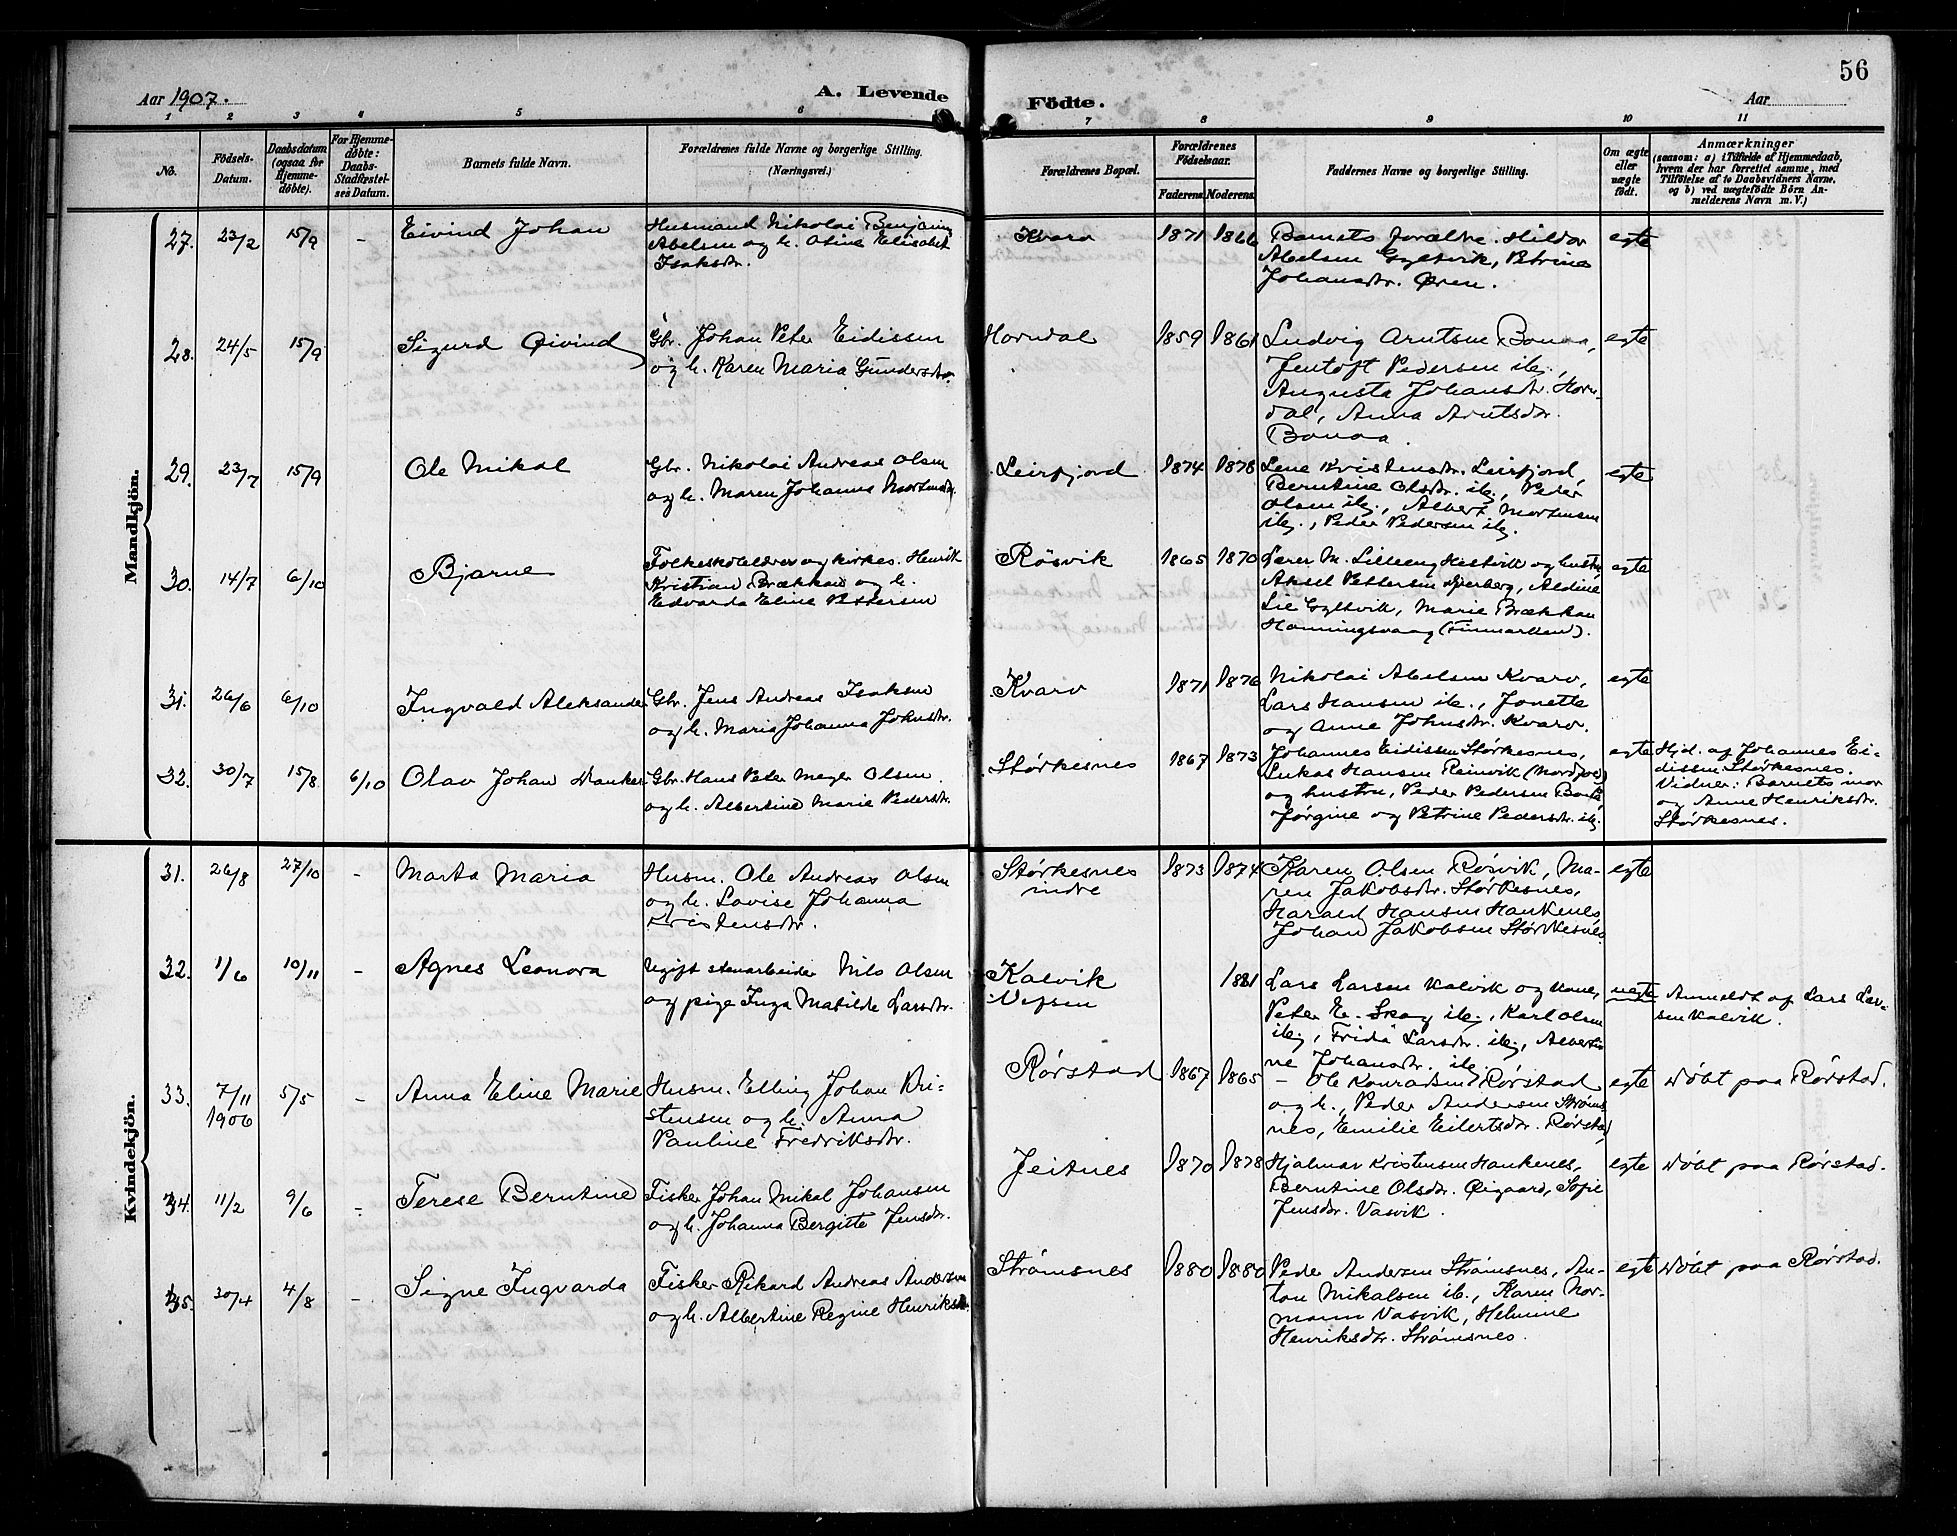 56
Aar 1907.
A. Levende Födte.
Aar
1 2 3 4 5 6 7 8 9 10 11
No.
Födsels-
Datum.
Daabsdatum
(ogsaa for
Hjemme-
döbte).
For Hjemme-
döbte:
Daabs-
Stadfæstel-
ses Datum.
Barnets fulde Navn.
Forældrenes fulde Navne og borgerlige Stilling.
(Næringsvei.)
Forældrenes Bopæl.
Forældrenes
Födselsaar.
Faderens. Moderens.
Faddernes Navne og borgerlige Stilling.
Om ægte
eller
uægte
födt.
Anmærkninger
(saasom: a) i Tilfælde af Hjemmedaab,
hvem der har forrettet samme, med
Tilföielse af to Daabsvidners Navne,
og b) ved uægtefödte Börn An-
melderens Navn m. V.)
Mandkjön.
27. 23/2 15/9 - Eivind Johan
Husmand Nikolai Benjamin
Abelsen og h. Oline Elisabet
Isaksdtr.
Kvarv 1871 1866
Barnets forældre. Hildor
Abelsen Gyltvik, Petrine
Johansdtr. Øren.
egte
28. 24/5 15/9 Sigurd Øivind
Gbr. Johan Peter Eidissen
og h. Karen Maria Gundersdtr.
Horndal 1859 1861
Ludvig Arntsen Bonaa,
Jentoft Pedersen ib.,
Augusta Johansdtr. Horn-
dal, Anna Arntsdtr.
Bonaa.
egte
29. 23/7 15/9 Ole Mikal
Gbr. Nikolai Andreas Olsen
og h. Maren Johanna Mortensdtr.
Leirfjord 1874 1878
Lene Kristensdtr. Leirfjord,
Berntine Olsdtr. ib., Peder
Olsen ib., Albert Mortensen
ib., Peder Pedersen ib.
egte
30. 14/7 6/10 Bjarne
Folkeskolelærer og kirkes. Henrik
Kristian Brækkan og h.
Edvarda Eline Pettersen
Rösvik 1865 1870
Lærer M. Lilleeng Hestvik og hustru,
Aksel Pettersen Fjerberg, Aldine
Lie Gyltvik, Marie Brækkan
Honningsvaag (Finmarken).
egte
31. 26/6 6/10 Ingvald Aleksander
Gbr. Jens Andreas Isaksen
og h. Maria Johanna Johnsdtr.
Kvarv 1871 1876
Nikolai Abelsen Kvarv,
Lars Hansen ib., Jonette
og Anne Johnsdtr. Kvarv.
egte
32. 30/7 15/8 6/10 Olav Johan Hanker
Gbr. Hans Peter Meyer Olsen
og h. Albertine Marie Pedersdtr.
Størkesnes 1867 1873
Johannes Eidissen Størkesnes,
Lukas Hansen Reinvik (Nordfold)
og hustru, Peder Pedersen
Jørgine og Petrine Pedersdtr. ib.
egte
Hjd. af Johannes Ei-
dissen Størkesnes.
Vidner: Barnets mor
og Anne Henriksdtr.
Størkesnes.
Kvindekjön.
31. 26/8 27/10 - Marta Maria
Husm. Ole Andreas Olsen
og h. Lovise Johanna
Kristensdtr.
Størkesnes
indre
1873 1874
Karen Olsen Røsvik, Ma-
ren Jakobsdtr. Størkesnes,
Harald Hansen Hankenes,
Johan Jakobsen Størkesnes.
egte
32. 1/6 10/11 - Agnes Leonora
Ugift stenarbeider Nils Olsen
og pige Inga Matilde Larsdtr.
Kalvik
Vefsen
1881
Lars Larsen Kalvik og kone,
Peter E. Skog ib., Karl Olsen
ib., Frida Larsdtr. ib., Alberti-
ne Johansdtr. ib.
uegte
Anmeldt af Lars Lar-
sen Kalvik.
33. 7/11
1906
5/5 - Anna Eline Marie
Husm. Elling Johan Kri-
stensen og h. Anna
Pauline Fredriksdtr.
Rørstad 1867 1865
- Ole Konradsen Rørstad
og h., Peder Andersen Strøms-
nes, Emilie Eilertsdtr. Rørstad
egte Döbt paa Rørstad.
34. 11/2 9/6 - Terese Berntine
Fisker Johan Mikal Johansen
og h. Johanna Bergitte Jensdtr.
Jeitnes 1870 1878
Hjalmar Kristensen Hankenes,
Berntine Olsdtr. Øigaard, Sofie
Jensdtr. Vasvik.
egte Döbt paa Rørstad.
35. 30/4 4/8 - Signe Ingvarda
Fisker Rikard Andreas Andersen
og h. Albertine Regine Henriksdtr.
Strømsnes 1880 1880
Peder Andersen Strømsnes, An-
ton Mikalsen ib., Karen Nor-
mann Vasvik, Helmine
Henriksdtr. Strømsnes.
egte Döbt paa Rørstad.